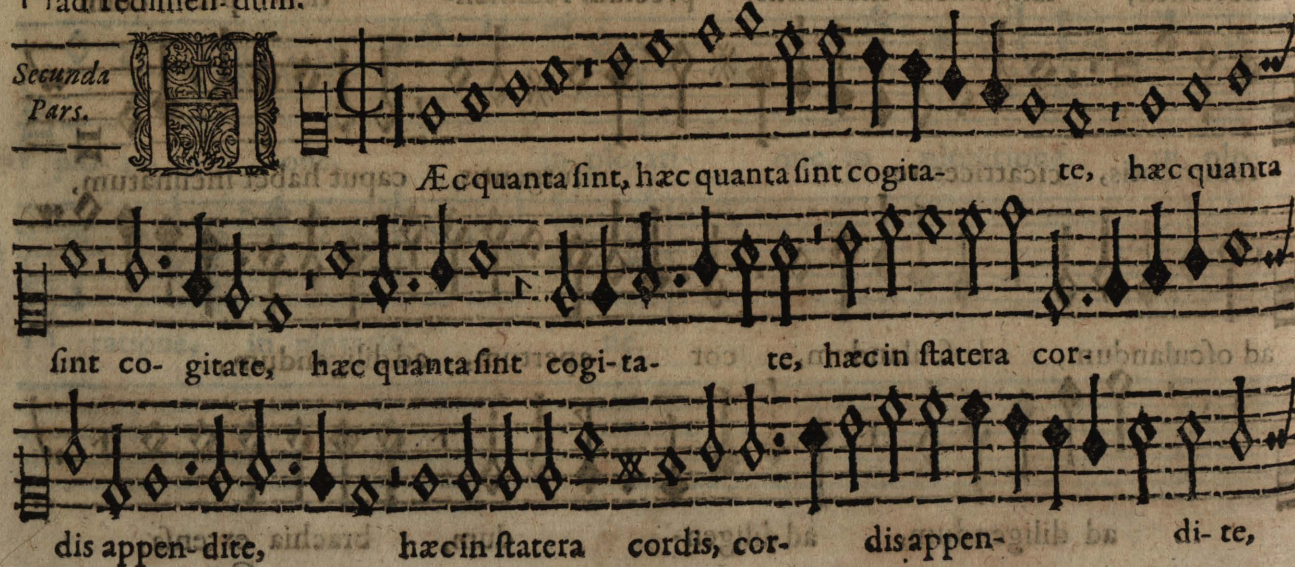 ad redimen-dum.
Secunda
Pars.
HÆc quanta sint, hæc quanta sint cogita- te, hæc quanta
sint co- gitate, hæc quanta sint cogi-ta- te, hæc in statera cor-
dis appen-dite, hæc in statera cordis, cor- dis appen- di- te,